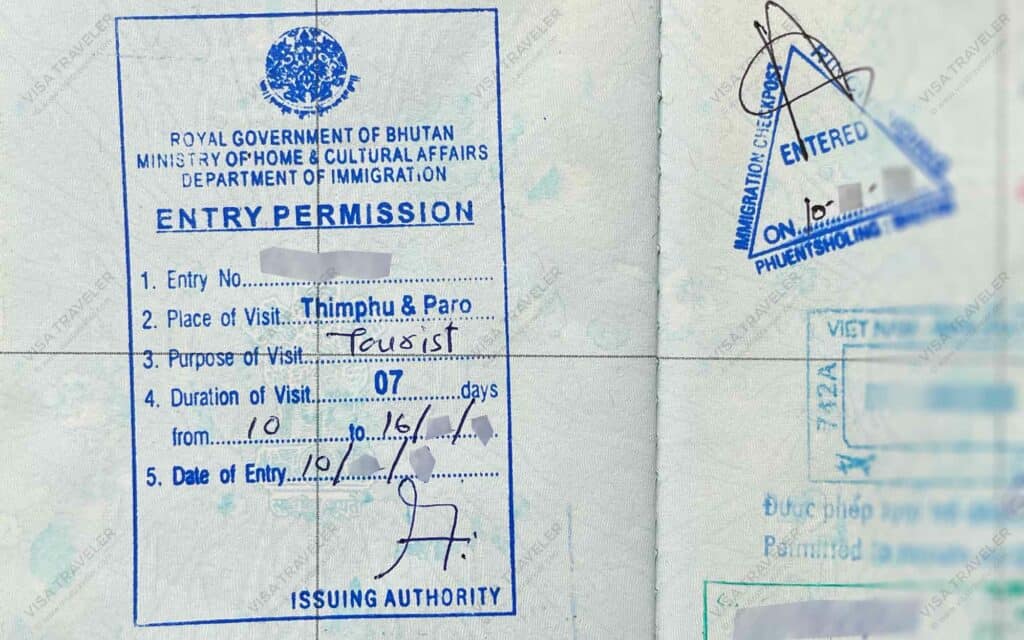 ROYAL GOVERNMENT OF BHUTAN
MINISTRY OF HOME & CULTURAL AFFAIRS
DEPARTMENT OF IMMIGRATION
ENTRY PERMISSION
1. Entry No.
2. Place of Visit Thimphu & Paro
3. Purpose of Visit Tourist
4. Duration of Visit 07 days
from 10 to 16/ /
5. Date of Entry 10/ /
ISSUING AUTHORITY
IMMIGRATION CHECKPOST
ENTERED
ON 10-
PHUENTSHOLING
VIET NAM
742A
Được phép
Permitted
VISA TRAVELER